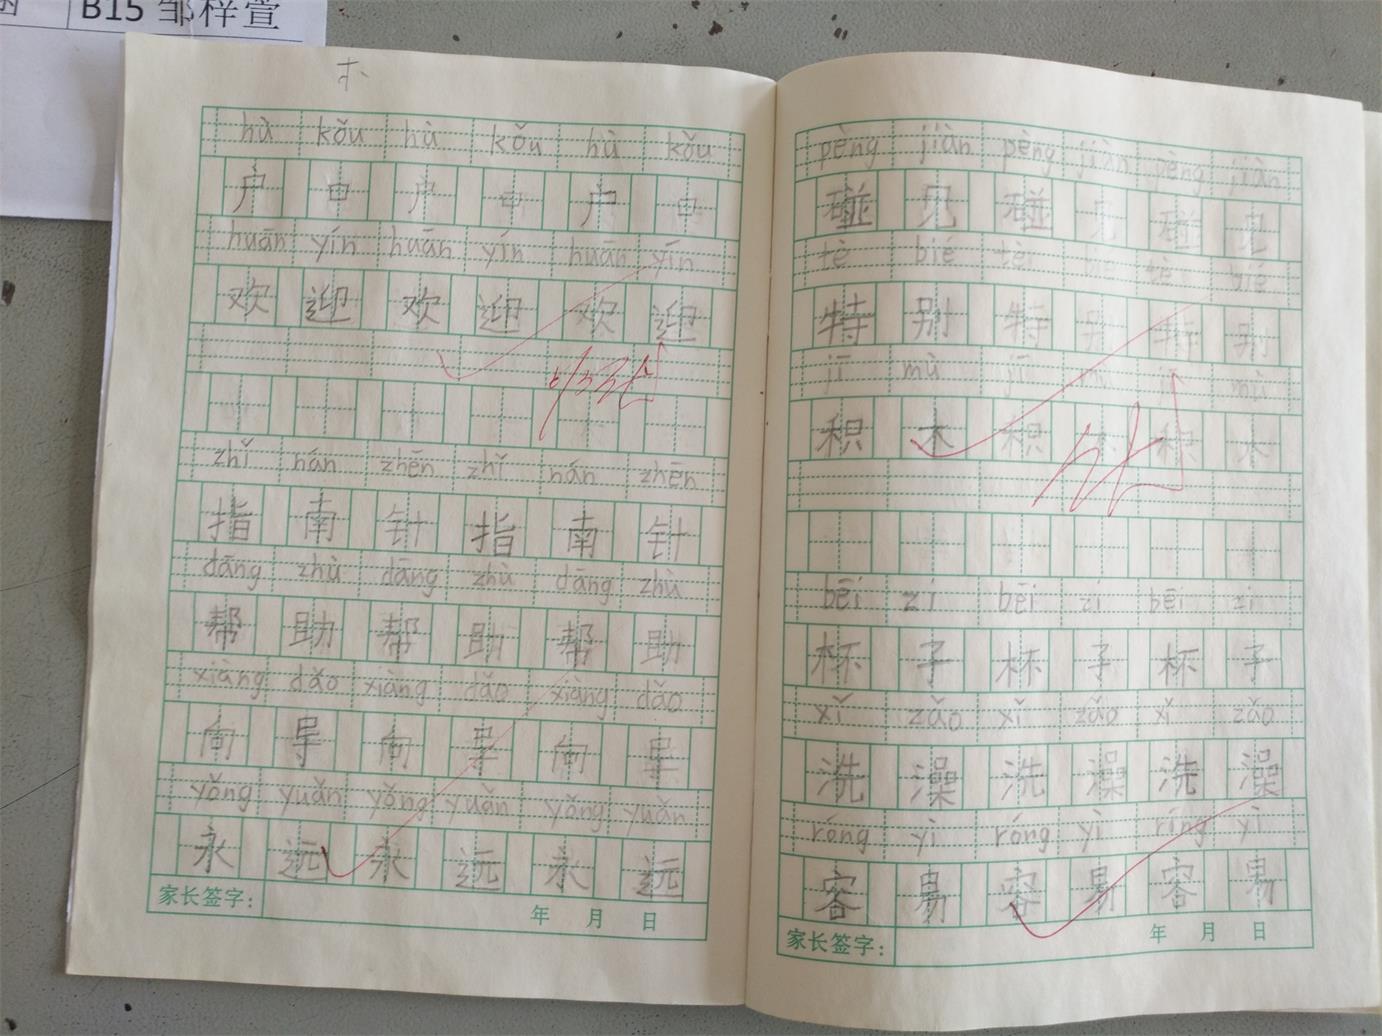 B15 邹样萱
hù kǒu hù kǒu hù kǒu
户 口 户 口 户 口
huān yín huān yín huān yín
欢 迎 欢 迎 欢 迎
zhǐ nán zhēn zhǐ nán zhēn
指 南 针 指 南 针
dāng zhù dāng zhù dāng zhù
帮 助 帮 助 帮 助
xiàng dǎo xiàng dǎo xiàng dǎo
向 导 向 导 向 导
yǒng yuǎn yǒng yuǎn yǒng yuǎn
永 远 永 远 永 远
家长签字: 年 月 日
pèng jiàn pèng jiàn pèng jiàn
碰 见 碰 见 碰 见
tè bié tè bié tè bié
特 别 特 别 特 别
jī mù jī mù jī mù
积 木 积 木 积 木
bēi zi bēi zi bēi zi
杯 子 杯 子 杯 子
xǐ zǎo xǐ zǎo xǐ zǎo
洗 澡 洗 澡 洗 澡
róng yì róng yì ríng yì
容 易 容 易 容 易
家长签字: 年 月 日